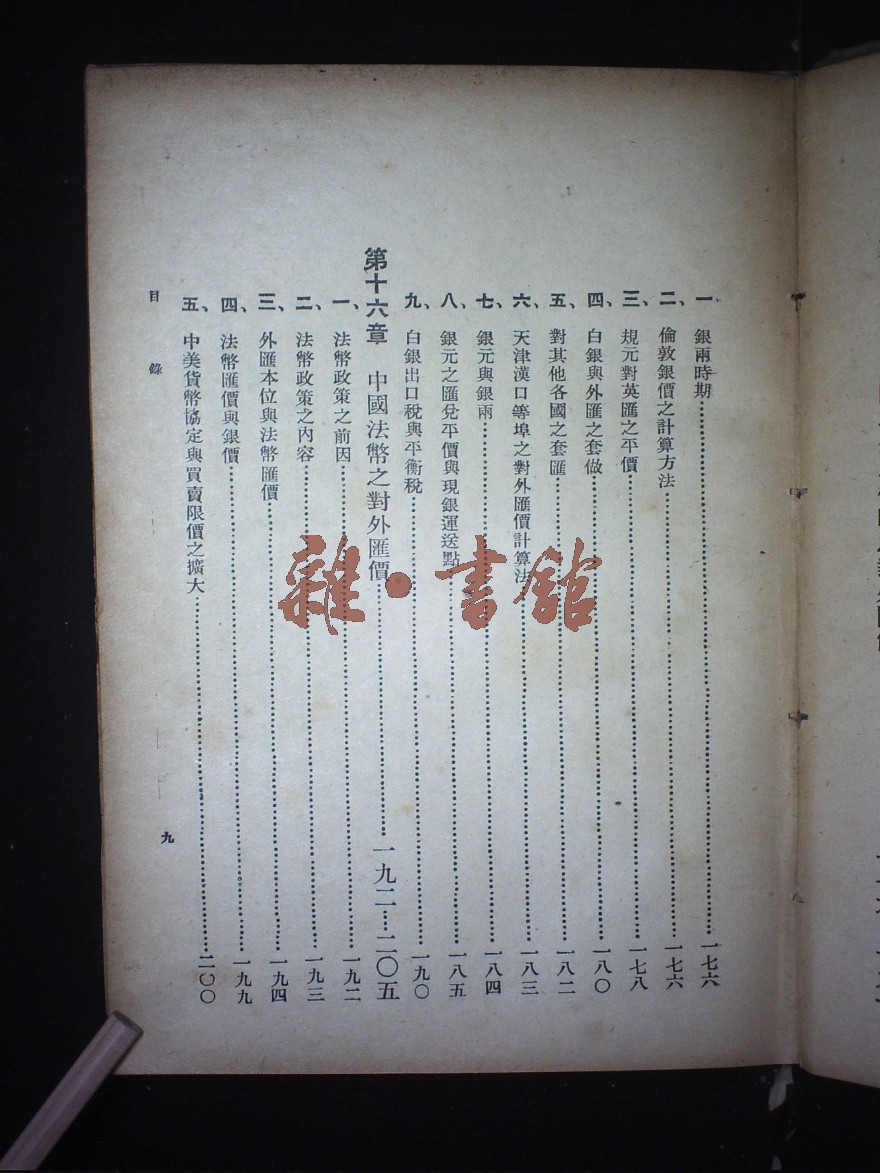 一、銀兩時期……一七六
二、倫敦銀價之計算方法……一七六
三、規元對英匯之平價……一七八
四、白銀與外匯之套做……一八〇
五、對其他各國之套匯……一八二
六、天津漢口等埠之對外匯價計算法……一八三
七、銀元與銀兩……一八四
八、銀元之匯兌平價與現銀運送點……一八五
九、白銀出口稅與平衡稅……一九〇
第十六章 中國法幣之對外匯價……一九二…二〇五
一、法幣政策之前因……一九二
二、法幣政策之內容……一九三
三、外匯本位與法幣匯價……一九四
四、法幣匯價與銀價……一九九
五、中美貨幣協定與買賣限價之擴大……二〇〇
目錄
九
雜·書館